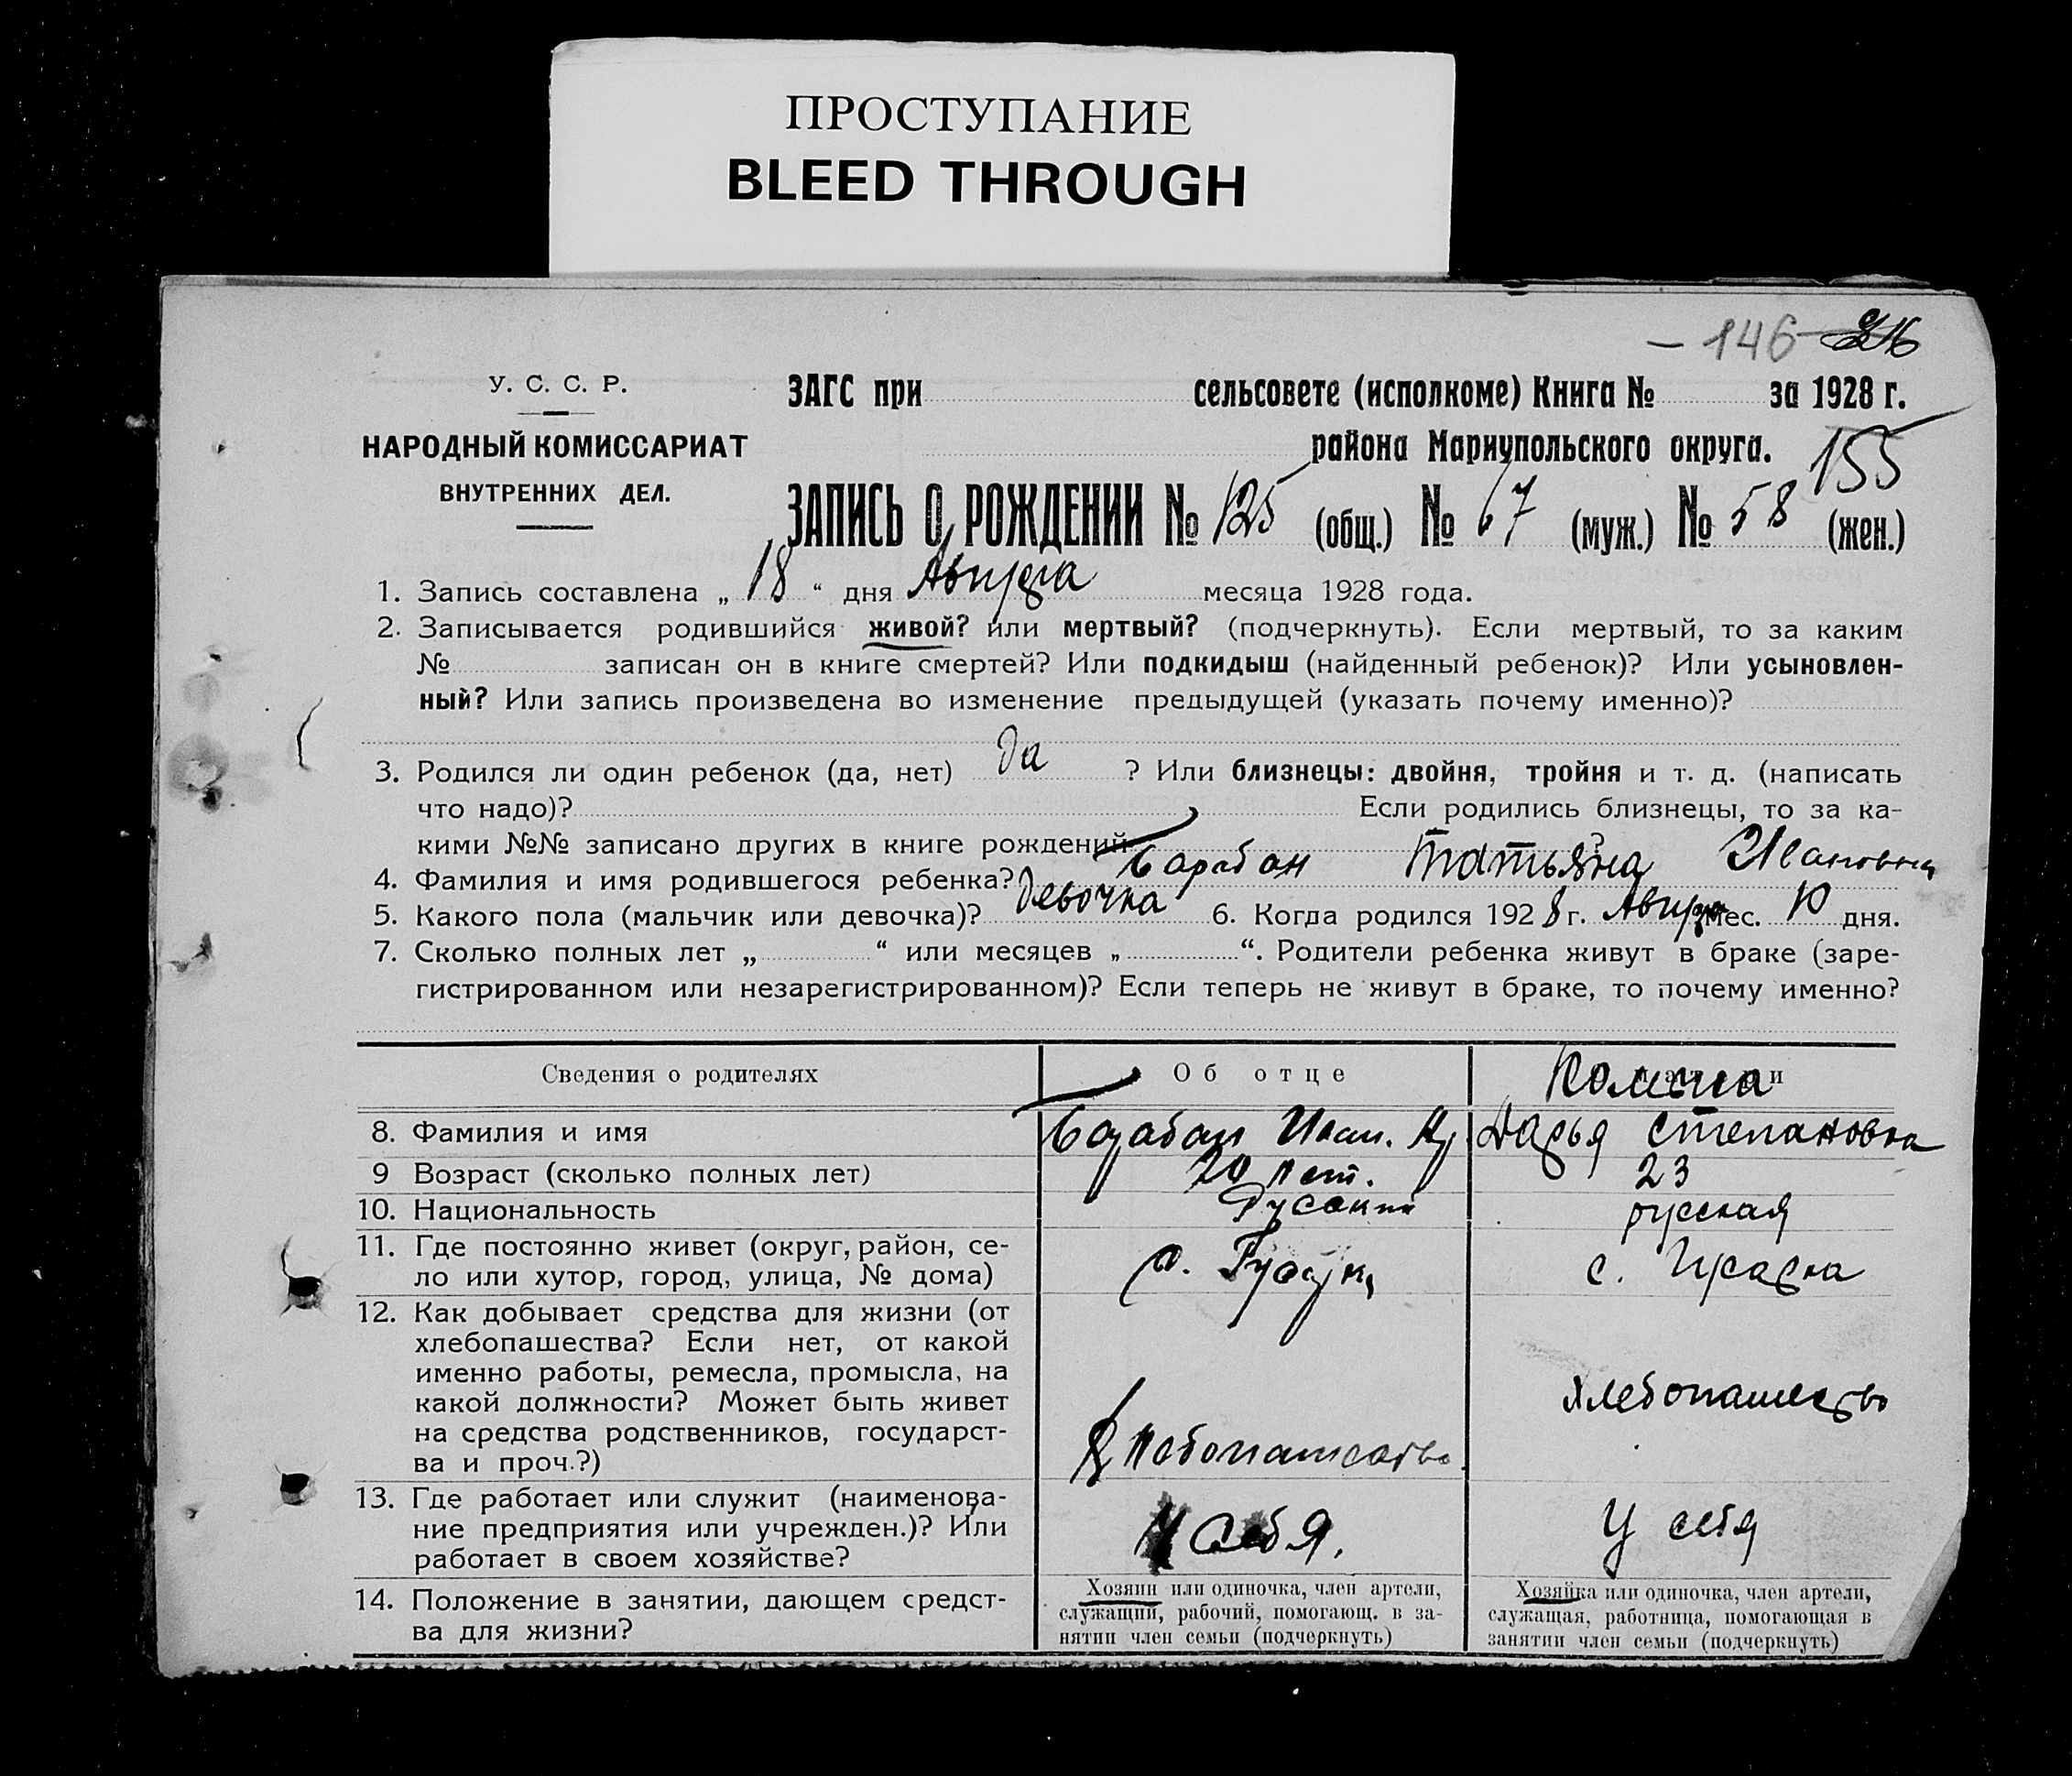 ПРОСТУПАНИЕ
BLEED THROUGH
– 146
У. С. С. Р.
ЗАГС при сельсовете (исполкоме) Книга № за 1928 г.
НАРОДНЫЙ КОМИССАРИАТ
района Мариупольского округа.
155
ВНУТРЕННИХ ДЕЛ.
ЗАПИСЬ О РОЖДЕНИИ № 125 (общ.) № 67 (муж.) № 58 (жен.)
1. Запись составлена „ 18 “ дня Августа месяца 1928 года.
2. Записывается родившийся живой? или мертвый? (подчеркнуть). Если мертвый, то за каким
№ записан он в книге смертей? Или подкидыш (найденный ребенок)? Или усыновлен-
ный? Или запись произведена во изменение предыдущей (указать почему именно)?
3. Родился ли один ребенок (да, нет) да ? Или близнецы: двойня, тройня и т. д. (написать
что надо)? Если родились близнецы, то за ка-
кими №№ записано других в книге рождений ?
4. Фамилия и имя родившегося ребенка? Барабан Татьяна Ивановна
5. Какого пола (мальчик или девочка)? девочка 6. Когда родился 1928 г. Августа мес. 10 дня.
7. Сколько полных лет „ “ или месяцев „ “. Родители ребенка живут в браке (заре-
гистрированном или незарегистрированном)? Если теперь не живут в браке, то почему именно?
Сведения о родителях Об отце
8. Фамилия и имя Барабан Иван. Дарья Степановна
9 Возраст (сколько полных лет) 20 лет. 23
10. Национальность Русский русская
11. Где постоянно живет (округ, район, се-
ло или хутор, город, улица, № дома) с. с.
12. Как добывает средства для жизни (от
хлебопашества? Если нет, от какой
именно работы, ремесла, промысла, на
какой должности? Может быть живет
на средства родственников, государст-
ва и проч.?)
Хлебопашество хлебопашество
13. Где работает или служит (наименова-
ние предприятия или учрежден.)? Или
работает в своем хозяйстве?
У себя. У себя
14. Положение в занятии, дающем средст-
ва для жизни?
Хозяин или одиночка, член артели,
служащий, рабочий, помогающ. в за-
нятии член семьи (подчеркнуть)
Хозяйка или одиночка, член артели,
служащая, работница, помогающая в
занятии член семьи (подчеркнуть)